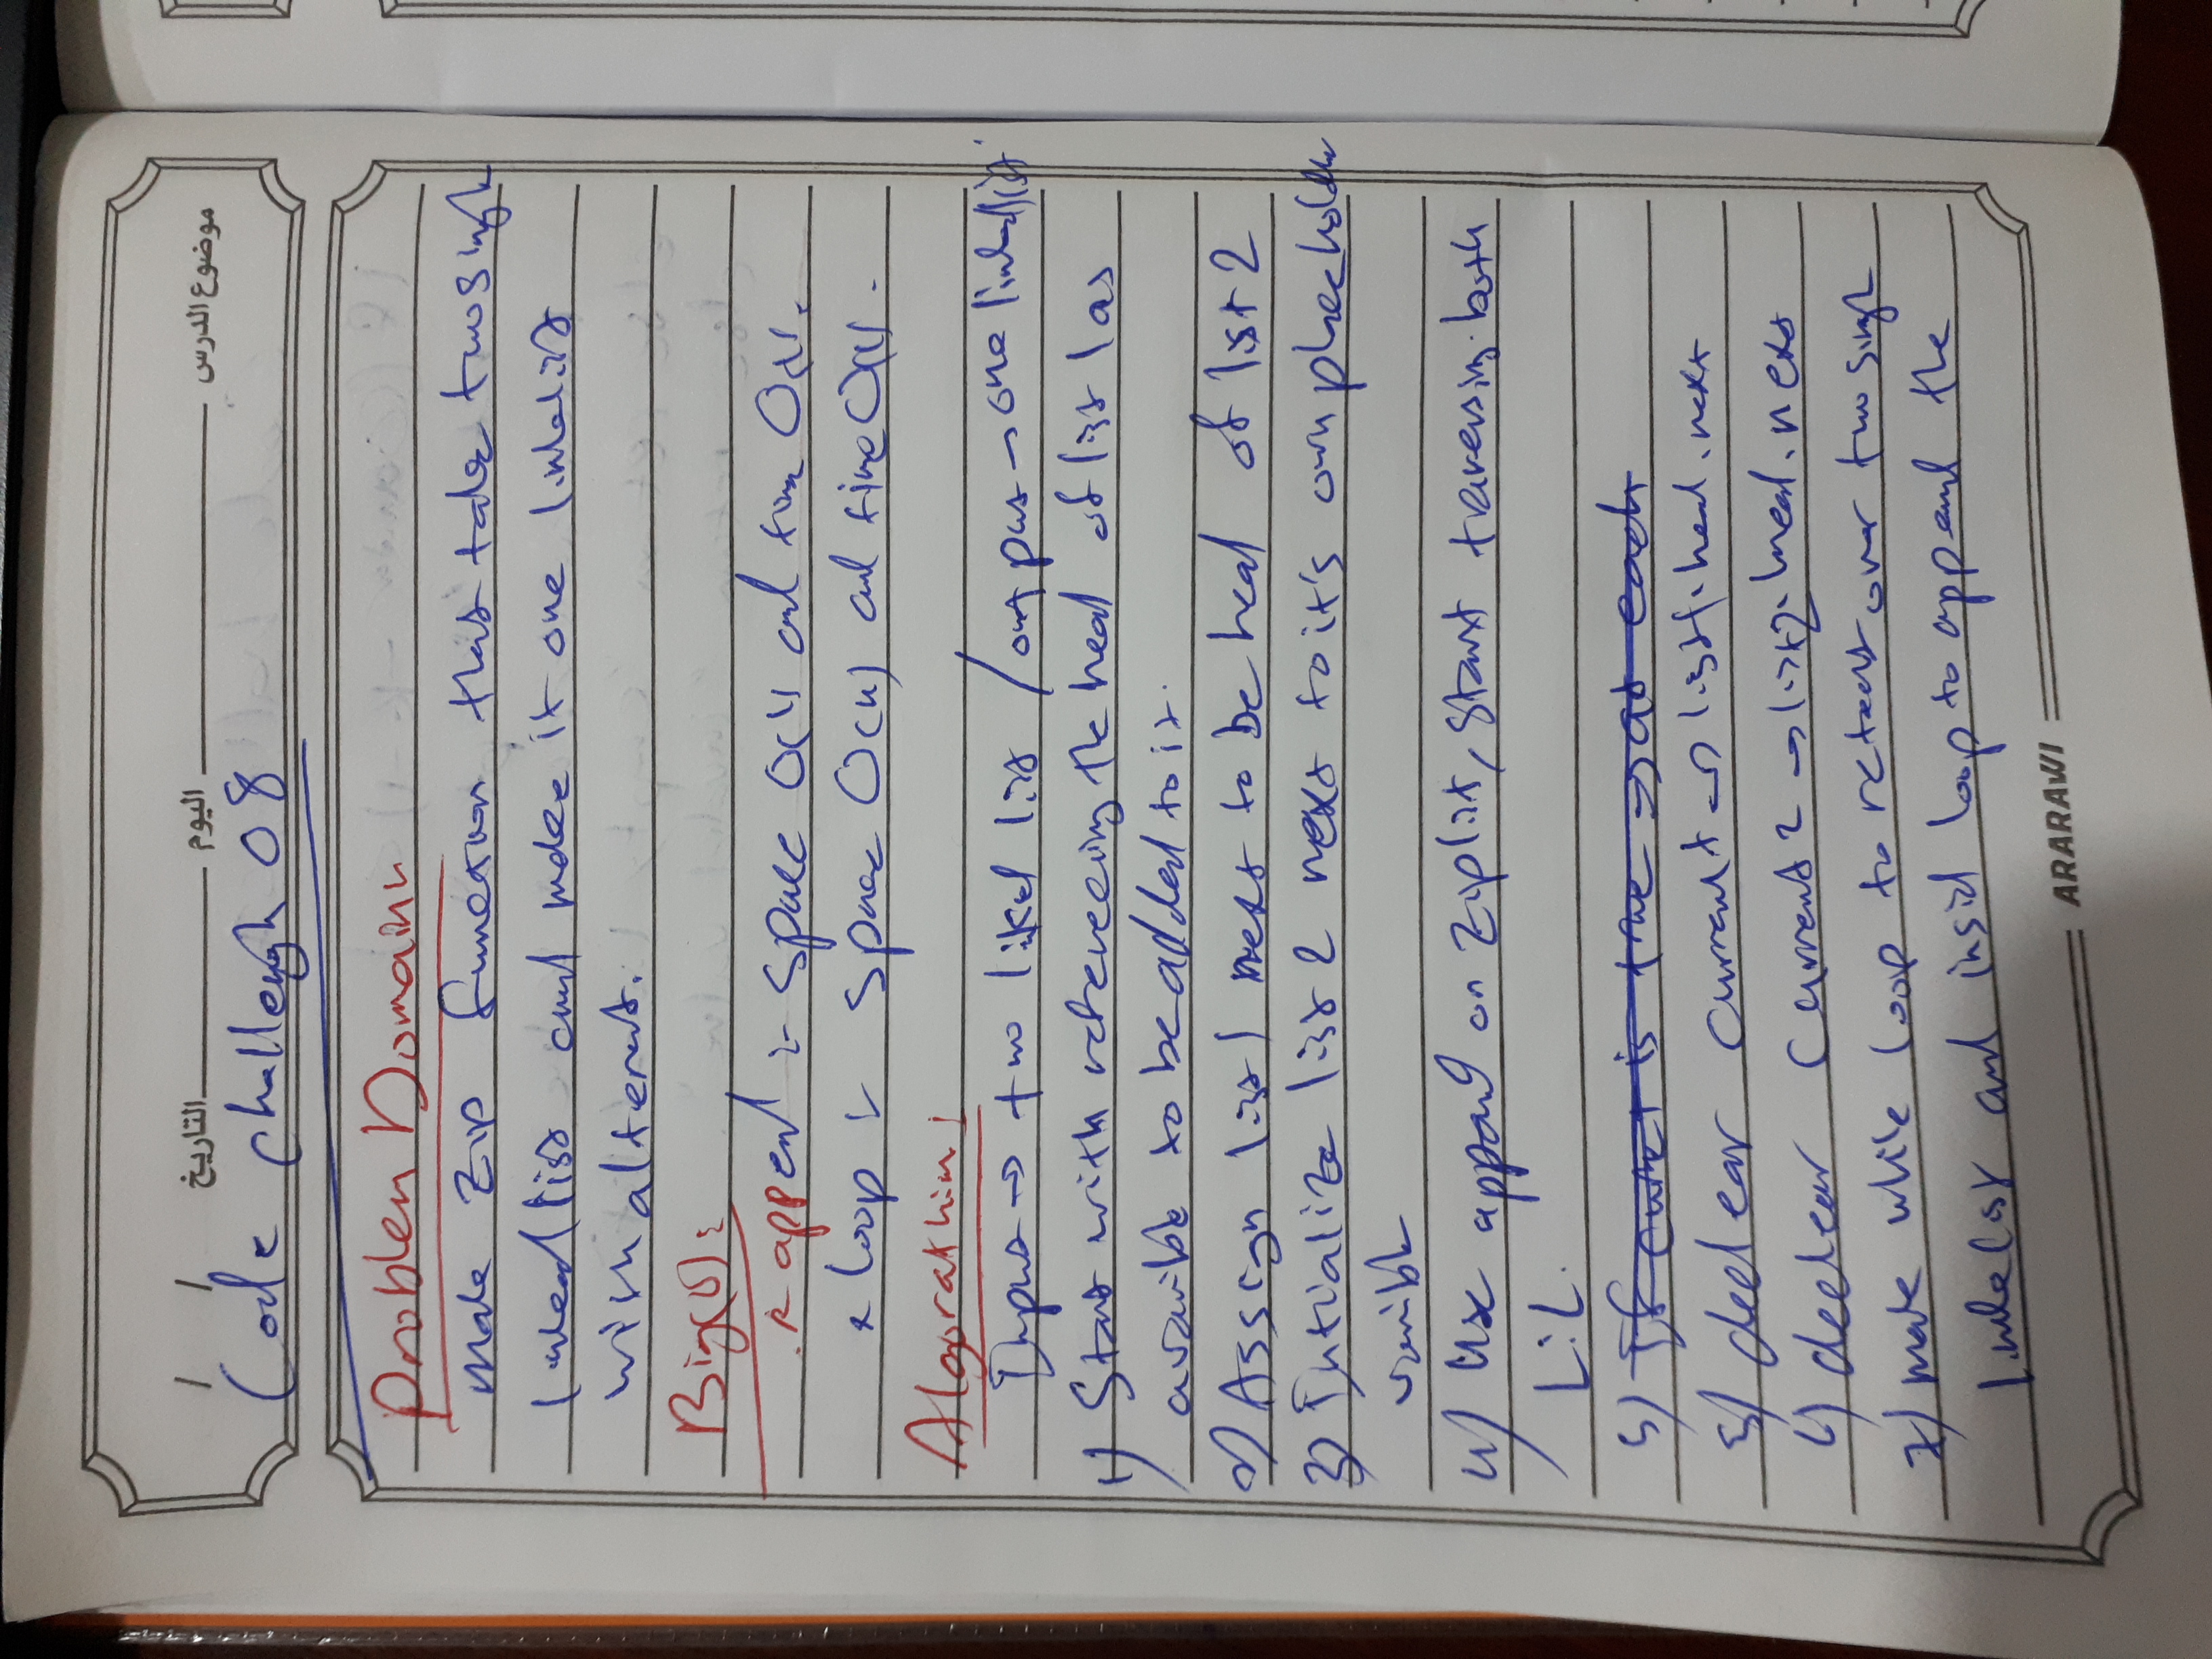 موضوع الدرس ـــــــ اليوم ـــــــ التاريخ / /
Code challengh 08
Problem Domainn
make Zip function that take two single
linked list and make it one linkelist
with alternat.
Big(O):
* append :- Space O(1) and time O(1).
* Loop :- Space O(n) and time O(1).
Algorathim:
Input → two likel list / output → one linked list
1) Start with refereceing the head of list 1 as
a varible to be added to it.
2) Assign list 1 next to be head of list 2
3) Intialize list 2 next to it's own placeholder
varible
4) Use append on Ziplist, Start traversing both
L.L.
5) If current is true → at each
5) declear current → list1.head.next
6) declear current 2 → list2.head.next
7) make while loop to over two single
linkelist and insid loop to append the
ARARAWI